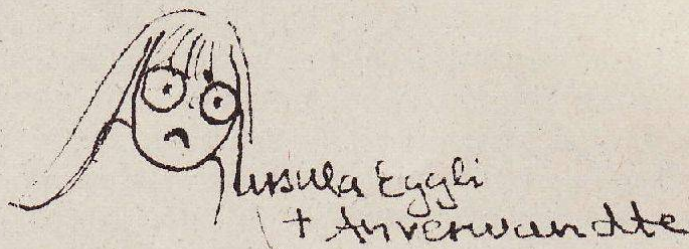 Ursula Eggli
+ Anverwandte